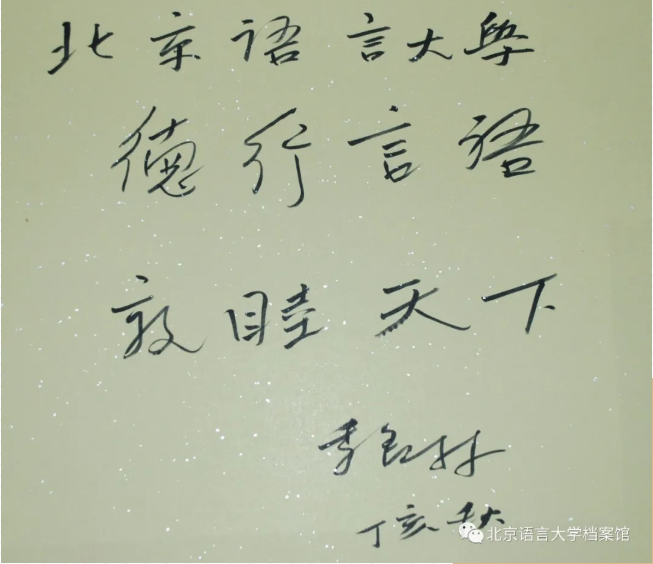 北京语言大學
德行言语
敦睦天下
季羡林
丁亥秋
北京语言大学档案馆